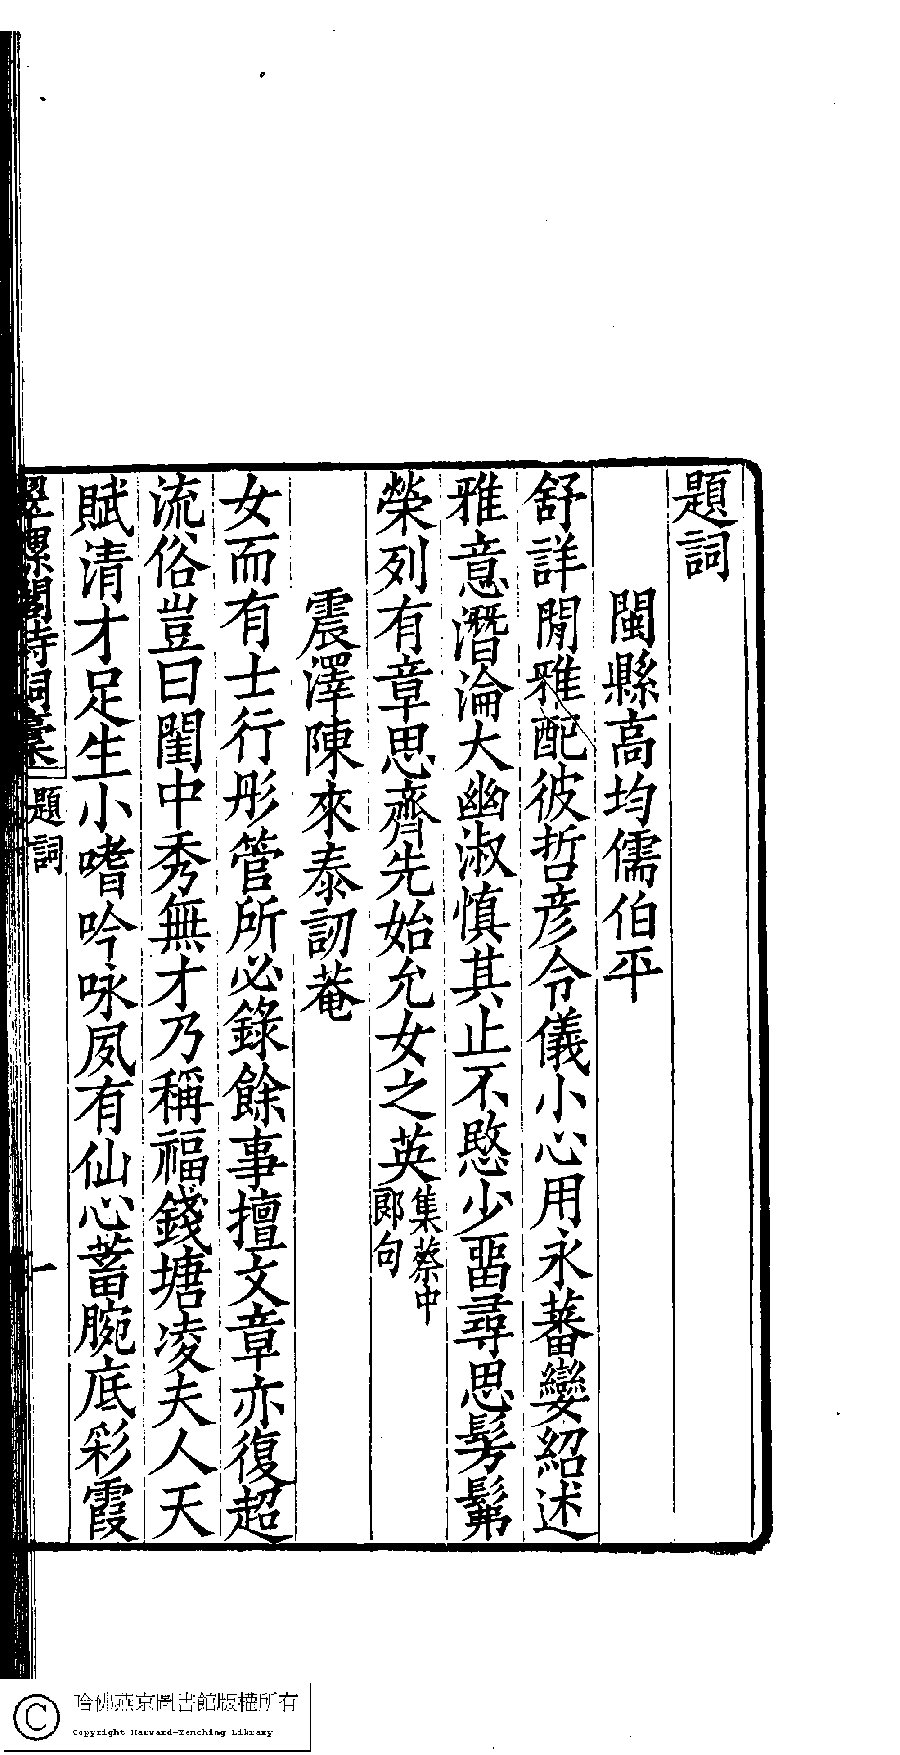 題詞
閩縣高均儒伯平
舒詳閒雅配彼哲彥令儀小心用永蕃孌紹述
雅意潛淪大幽淑慎其止不愍少畱尋思髣髴
榮列有章思齊先始允女之英集蔡中郎句
震澤陳來泰訒菴
女而有士行彤管所必錄餘事擅文章亦復超
流俗豈曰閨中秀無才乃稱福錢塘凌夫人天
賦清才足生小嗜吟咏夙有仙心蓄腕底彩霞
翠螺閣詩詞稾 題詞 一
哈佛燕京圖書館版權所有
Copyright Harvard-Yenching Library